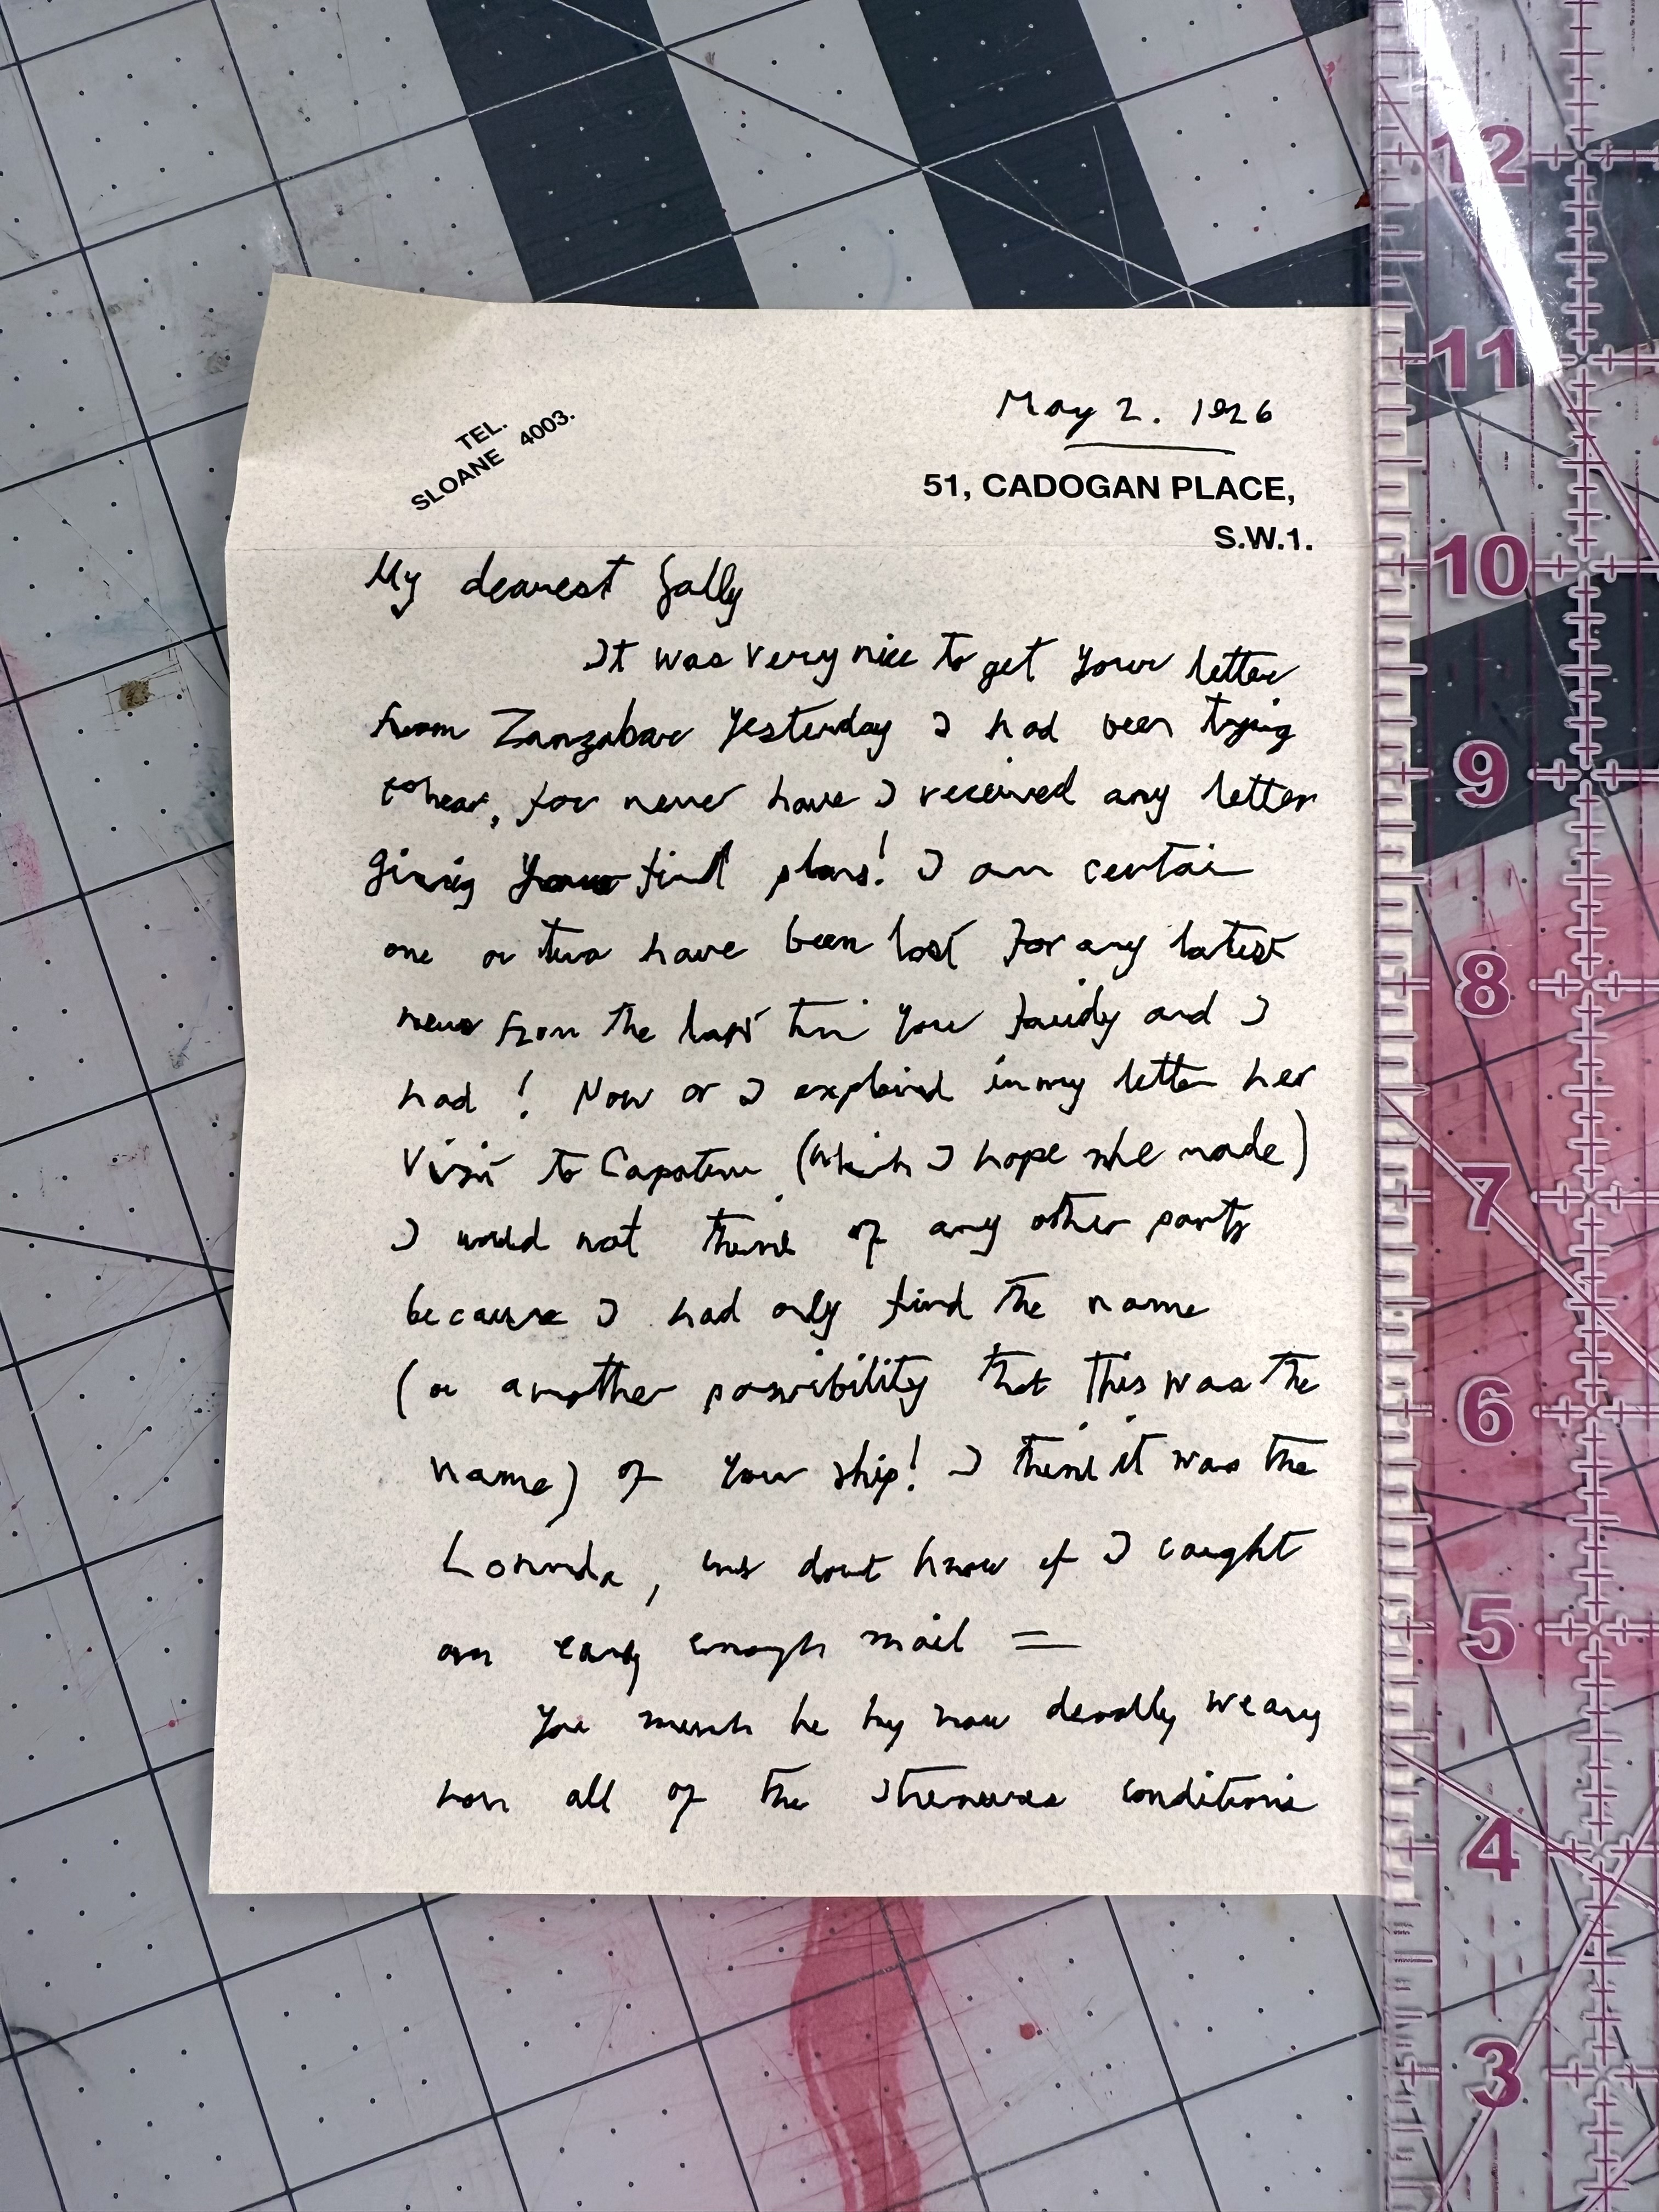 May 2. 1926
TEL.
SLOANE 4003.
51, CADOGAN PLACE,
S.W.1.
My dearest Sally
It was very nice to get your letter
from Zanzabar yesterday I had been trying
to hear, for never have I received any letter
giving your plans! I am certain
one or two have been lost for any latest
news from the last you and I
had! Now as I explained in my letter her
visit to (which I hope she made)
I would not think of any other ports
because I had only find the name
(or another possibility that this was the
name) of your ship! I think it was the
dont know if I caught
an early enough mail =
You must be by now deadly weary
all of the strenuous conditions
12
11
10
9
8
7
6
5
4
3